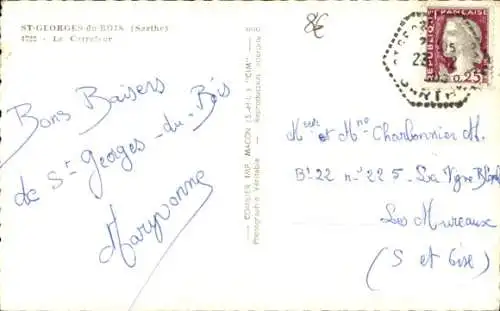 ST-GEORGES-du-BOIS (Sarthe)
4722 - Le Carrefour
8€
RÉPUBLIQUE FRANÇAISE
0,25
Bons Baisers
de St Georges-du-Bois
Maryvonne
COMBIER IMP. MACON (S.-et-L.) "CIM"
Photographie Véritable - Reproduction interdite
Mr et Mme Charbonnier M.
Bt 22 n° 225 - La Vigne Blanche
Les Mureaux
(S et Oise)